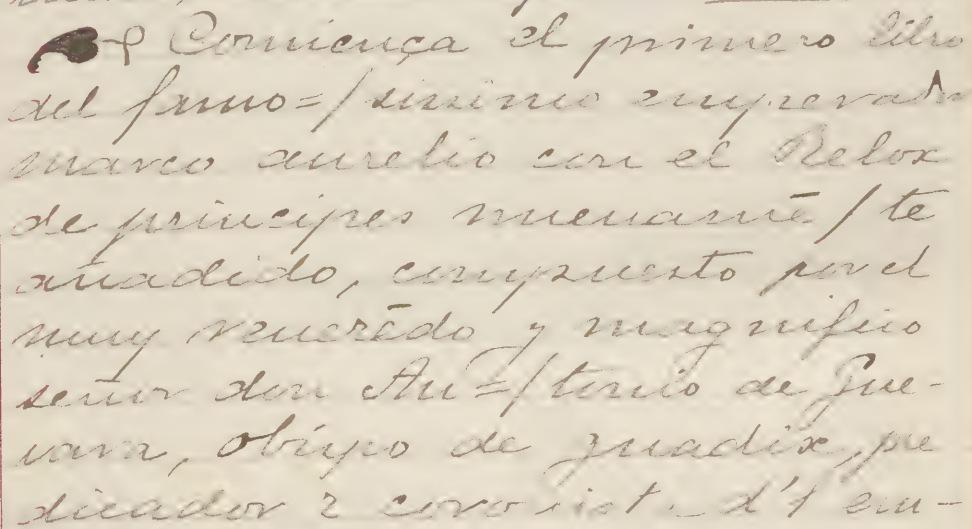 Comiença el primero libro
del famo=/sissimo emperador
marco aurelio con el Relox
de principes nueuamē/te
añadido, compuesto por el
muy venerādo y magnifico
señor don An=/tonio de Gue-
vara, obispo de guadix, pre
dicador 2 coronista d'l em-